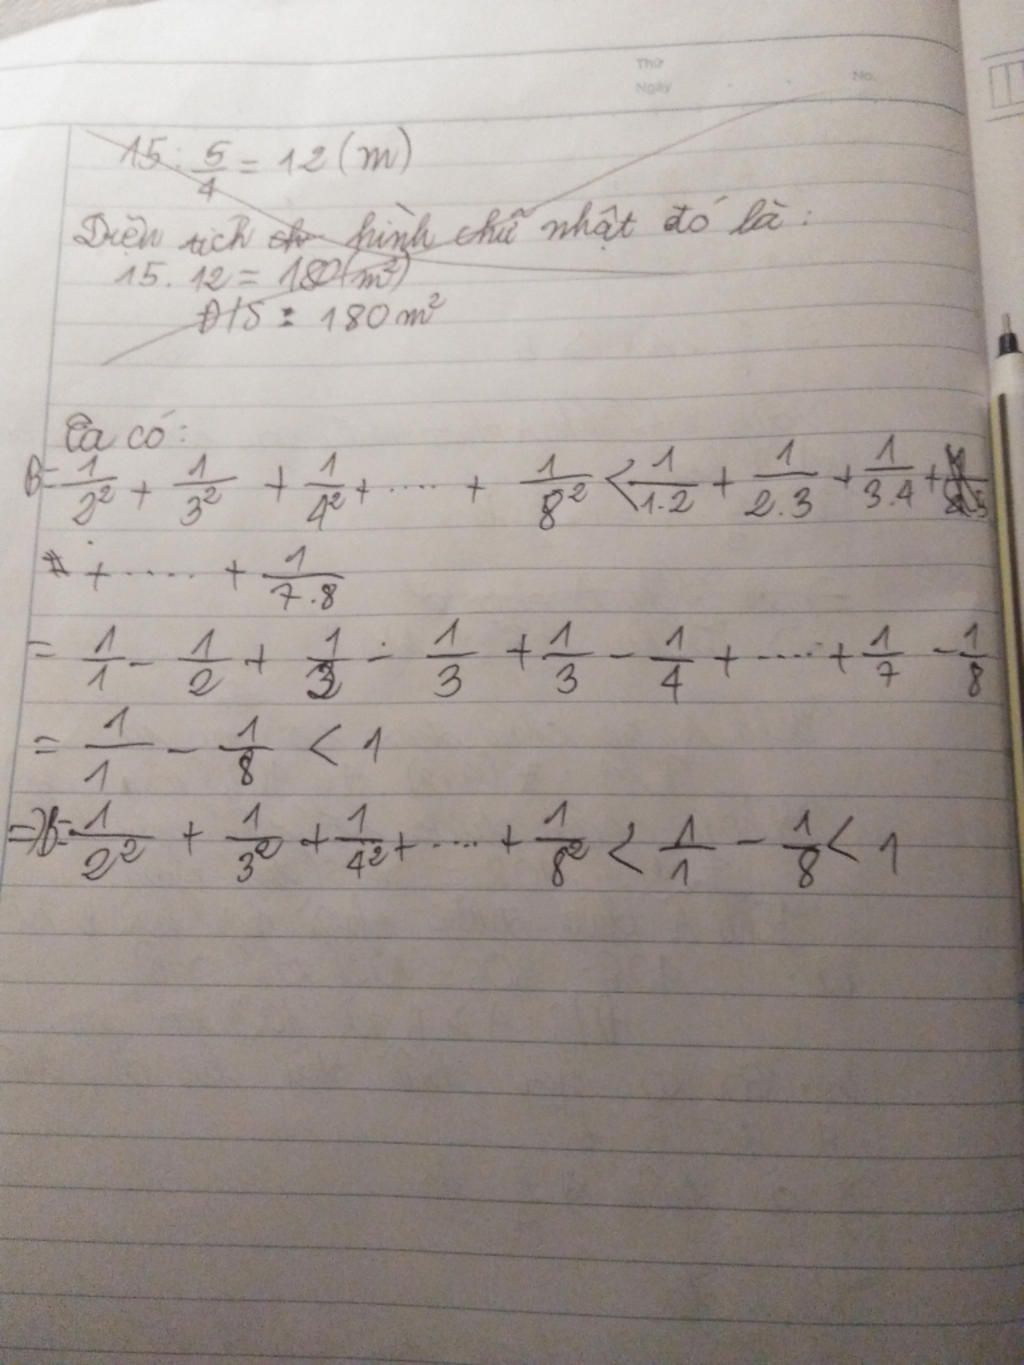 Thứ
Ngày No.
15 : 5/4 = 12 (m)
Diện tích ch hình chữ nhật đó là :
15 . 12 = 180 (m²)
Đ/S : 180 m²
Ta có :
B = 1/2² + 1/3² + 1/4² + .... + 1/8² < 1/1.2 + 1/2.3 + 1/3.4 +
+ ..... + 1/7.8
= 1/1 - 1/2 + 1/2 - 1/3 + 1/3 - 1/4 + ..... + 1/7 - 1/8
= 1/1 - 1/8 < 1
=> B = 1/2² + 1/3² + 1/4² + .... + 1/8² < 1/1 - 1/8 < 1